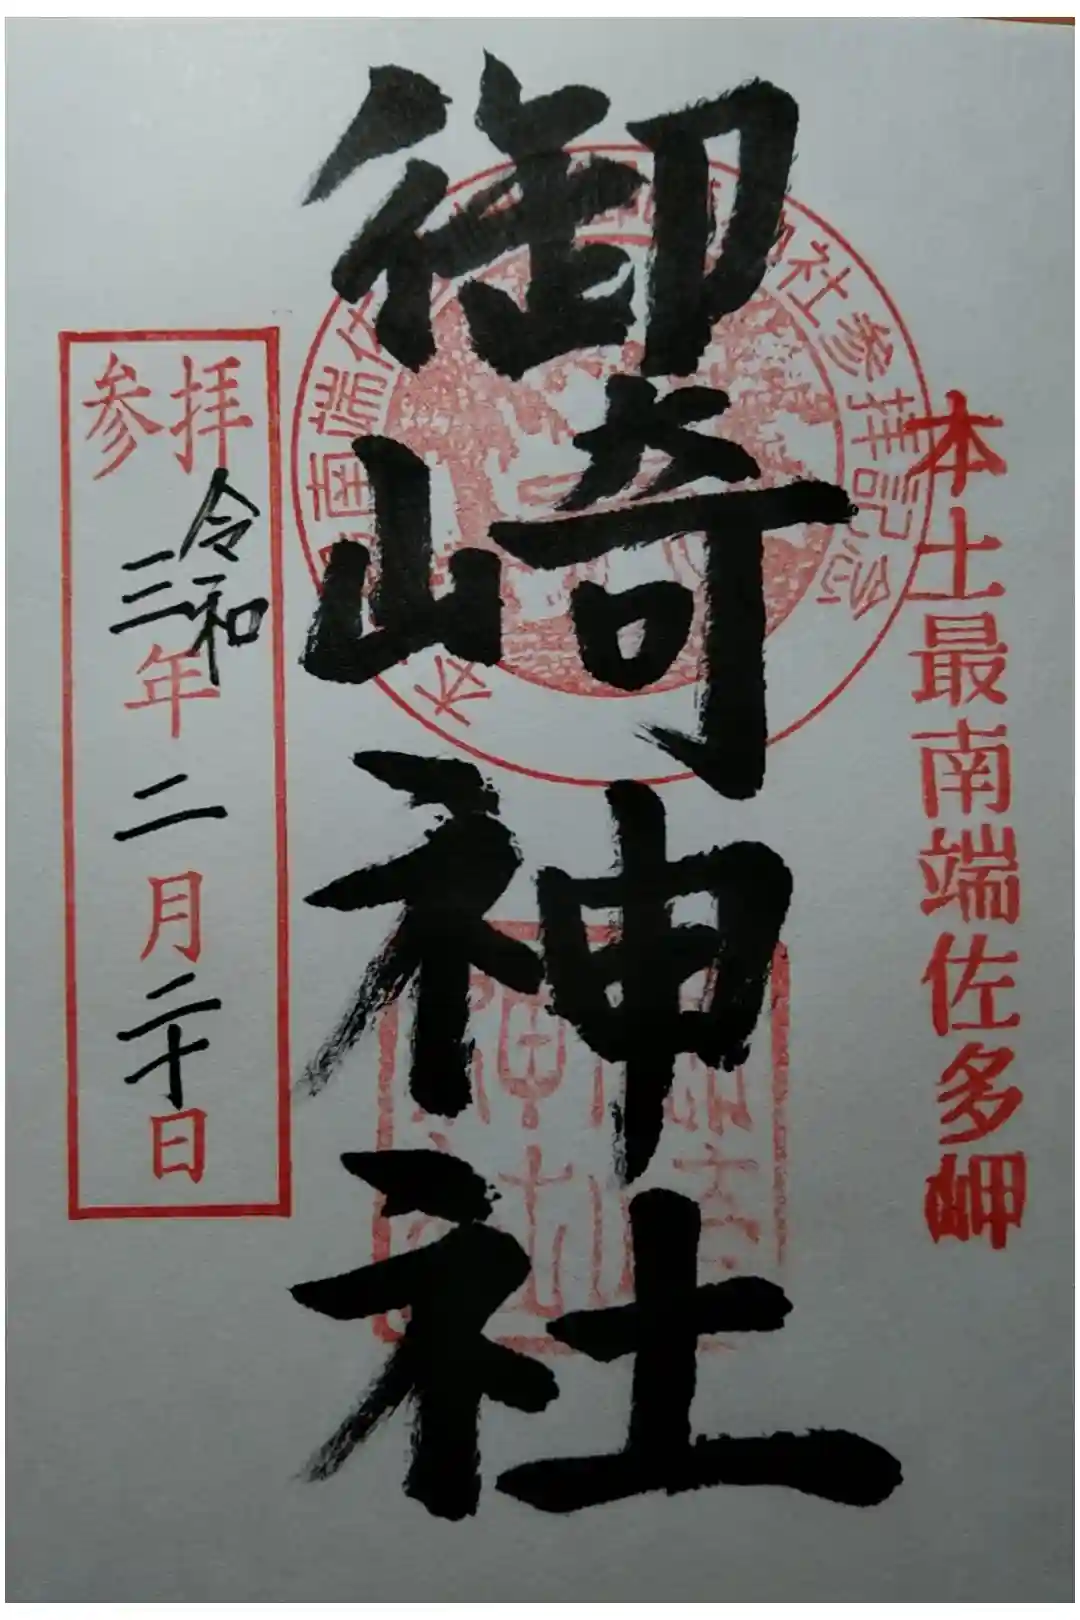 本土最南端佐多岬
御崎神社
参拝
令和
三年二月二十日
社参拝記念